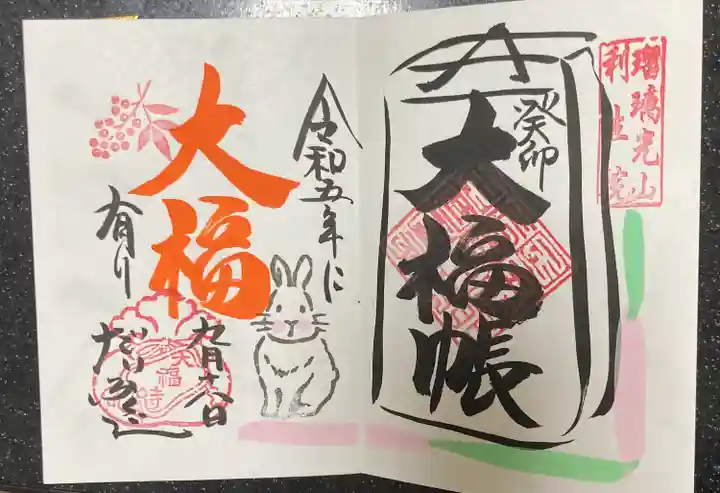 瑠璃光山
利生院
癸卯
大福帳
令和五年に
大福
有り
九月六日
だいふく
笑福